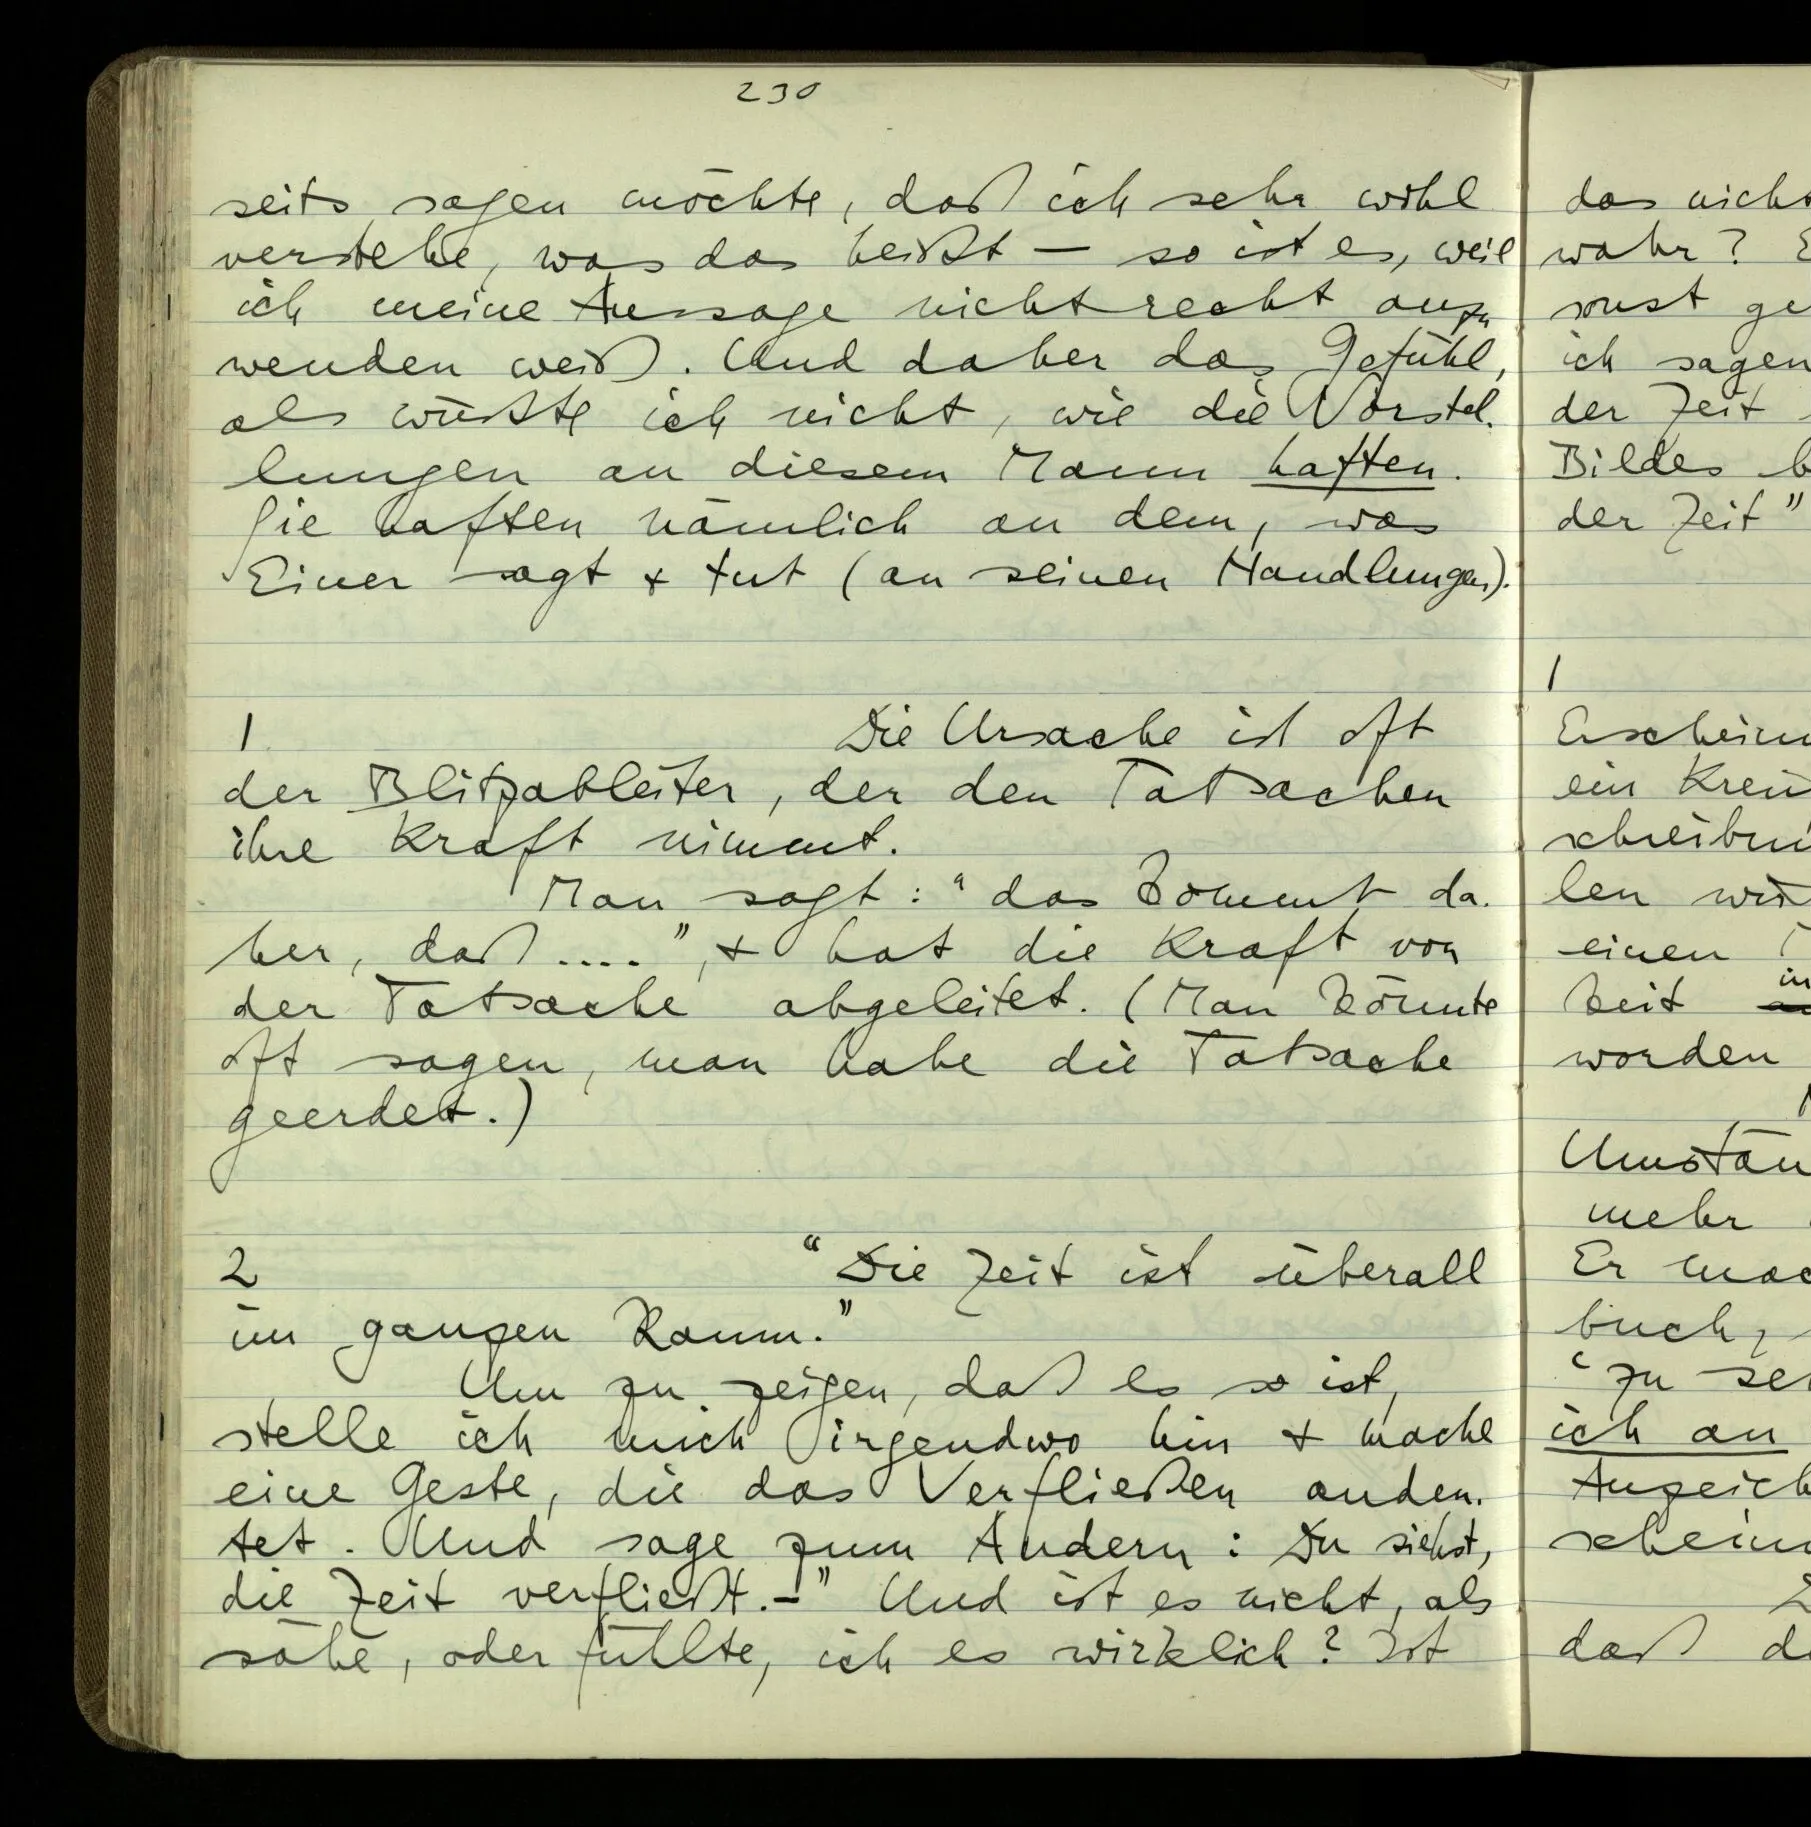 230
seits sagen möchte, daß ich sehr wohl
verstehe, was das heißt — so ist es, weil
ich meine Aussage nicht recht anzu
wenden weiß. Und daher das Gefühl,
als wüßte ich nicht, wie die Vorstel-
lungen an diesem Mann haften.
Sie haften nämlich an dem, was
Einer sagt & tut (an seinen Handlungen).
1
Die Ursache ist oft
der Blitzableiter, der den Tatsachen
ihre Kraft nimmt.
Man sagt: "das kommt da-
her, daß ....", & hat die Kraft von
der Tatsache abgeleitet. (Man könnte
oft sagen, man habe die Tatsache
geerdet.)
2
"Die Zeit ist überall
im ganzen Raum."
Um zu zeigen, daß es so ist,
stelle ich mich irgendwo hin & mache
eine Geste, die das Verfließen andeu-
tet. Und sage zum Andern: Du siehst,
die Zeit verfließt.–" Und ist es nicht, als
sähe, oder fühlte, ich es wirklich? Ist
das nicht
wahr? E
sonst ge
ich sagen
der Zeit
Bildes b
der Zeit"
1
Erschein
ein Kreu
schreibu
len wi
einen
in
keit
worden
Umstän
mehr
Er mac
buch,
'zu se
ich an
Anzeich
schein
daß d